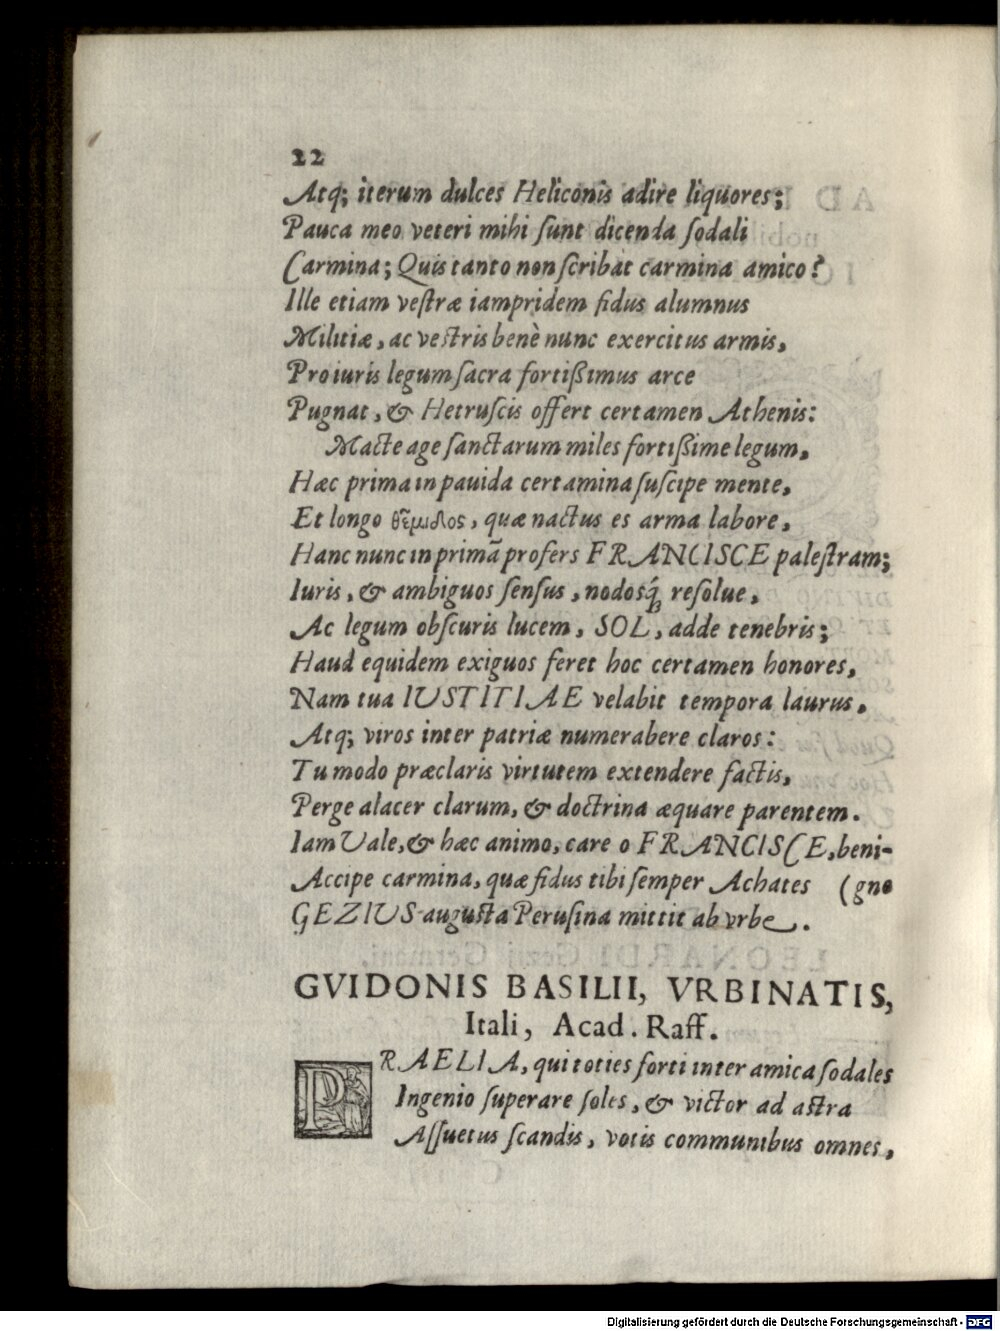 22
Atq; iterum dulces Heliconis adire liquores;
Pauca meo veteri mihi sunt dicenda sodali
Carmina; Quis tanto non scribat carmina amico?
Ille etiam vestræ iampridem fidus alumnus
Militiæ, ac vestris benè nunc exercitus armis,
Pro iuris legum sacra fortißimus arce
Pugnat, & Hetruscis offert certamen Athenis:
Macte age sanctarum miles fortißime legum,
Hæc prima inpauida certamina suscipe mente,
Et longo θέμιδος, quæ nactus es arma labore,
Hanc nunc in primā profers FRANCISCE palestram;
Iuris, & ambiguos sensus, nodosq́; resolue,
Ac legum obscuris lucem, SOL, adde tenebris;
Haud equidem exiguos feret hoc certamen honores,
Nam tua IUSTITIAE velabit tempora laurus,
Atq; viros inter patriæ numerabere claros:
Tu modo præclaris virtutem extendere factis,
Perge alacer clarum, & doctrina æquare parentem.
Iam Uale, & hæc animo, care o FRANCISCE, beni-
Accipe carmina, quæ fidus tibi semper Achates (gno
GEZIUS augusta Perusina mittit ab vrbe.
GVIDONIS BASILII, VRBINATIS,
Itali, Acad. Raff.
PRAELIA, qui toties forti inter amica sodales
Ingenio superare soles, & victor ad astra
Assuetus scandis, votis communibus omnes,
Digitalisierung gefördert durch die Deutsche Forschungsgemeinschaft - DFG